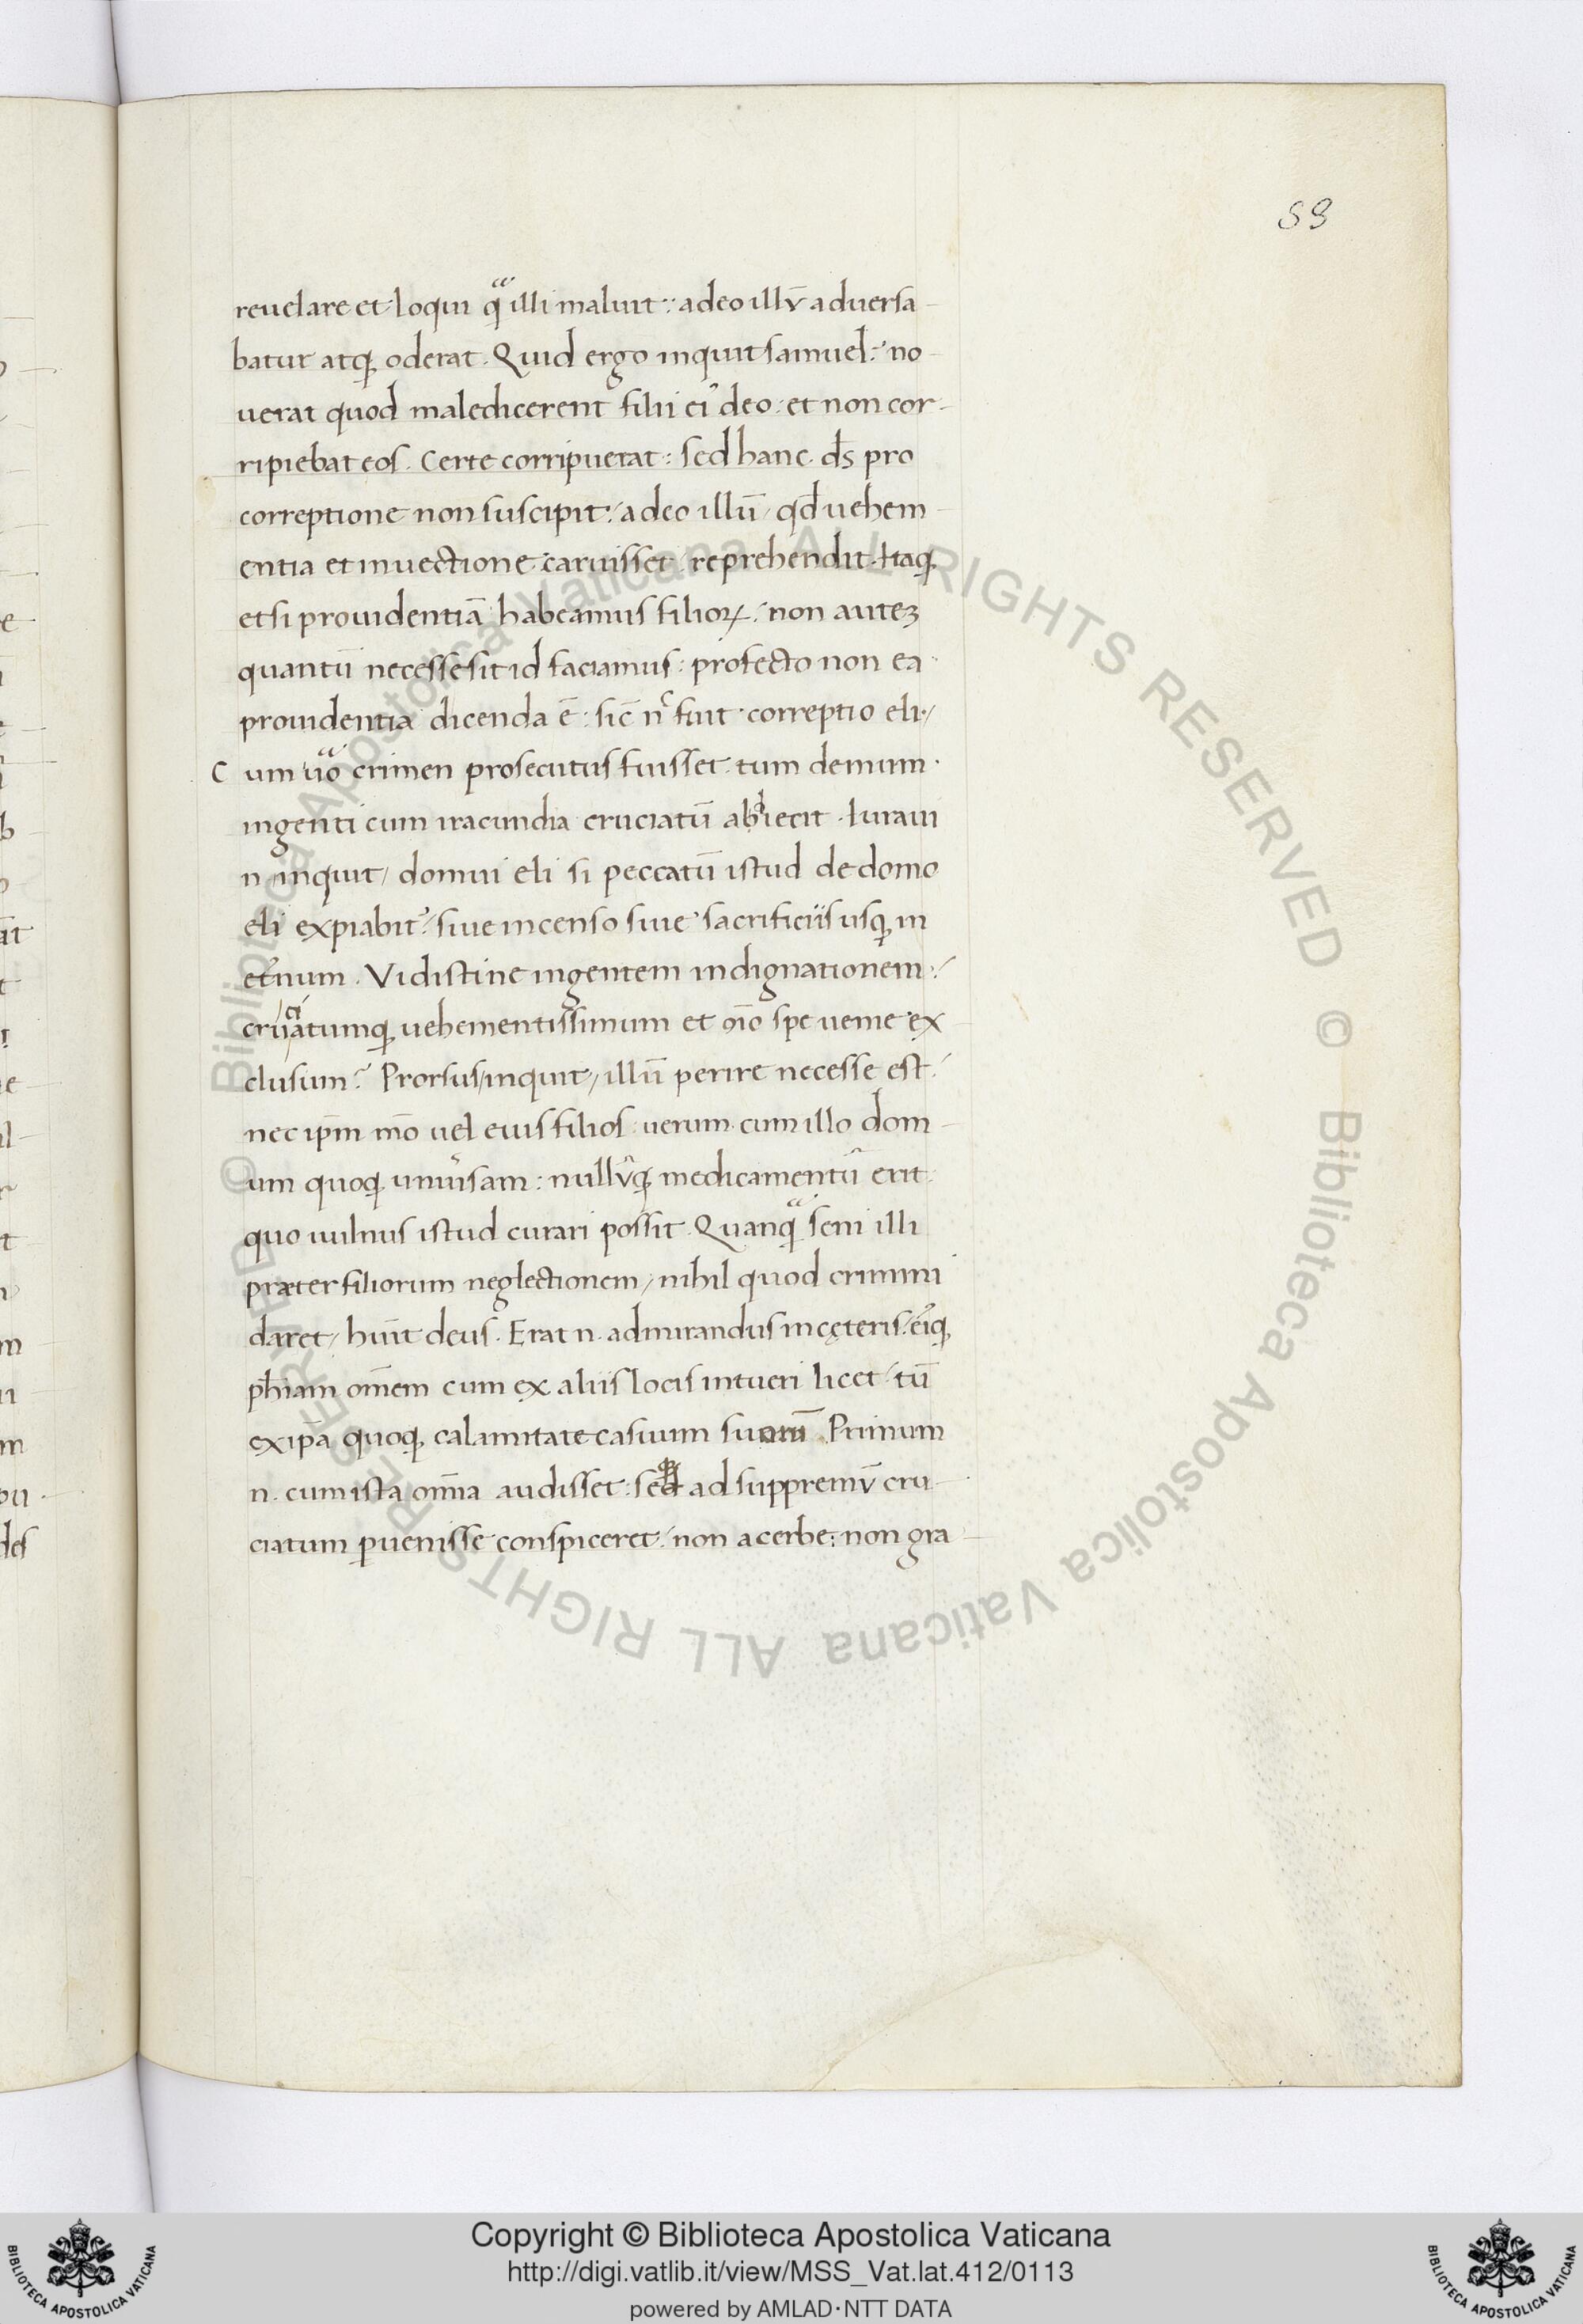 59
reuelare et loqui qᷓ illi maluit: adeo illū aduersa
batur atqꝫ oderat. Quid ergo inquit samuel: no
uerat quod maledicerent filii eiꝰ deo: et non cor-
ripiebat eos. Certe corripuerat: sed hanc ds̄ pro
correptione non suscipit: adeo illū qd̄ uehem
entia et inuectione caruisset reprehendit. Itaqꝫ
etsi prouidentiā habeamus filioꝝ: non auteꝫ
quantū necesse sit id faciamus: profecto non ea
prouidentia dicenda ē: sic̄ nͨ fuit correptio eli:
Cum uͦo crimen prosecutus fuisset tum demum
ingenti cum iracundia cruciatū abiecit. Iuraui
n inquit, domui eli si peccatū istud de domo
eli expiabit᷑: siue incenso siue sacrificiis usqꝫ in
et̾num. Vidistine ingentem indignationem:
cruciatumqꝫ uehementissimum et oīo spe uenie ex
clusum? Prorsus, inquit, illū perire necesse est:
nec ip̄m mō uel eius filios: uerum cum illo dom
um quoqꝫ uniu̾sam: nullūqꝫ medicamentū erit
quo uulnus istud curari possit. Quanqᷓ seni illi
præter filiorum neglectionem, nihil quod crimini
daret, huīt deus. Erat n. admirandus in cęteris: eiꝰqꝫ
ph̄iam om̄em cum ex aliis locis intueri licet: tū
ex ip̄a quoqꝫ calamitate casuum suorū. Primum
n. cum ista om̄ia audisset: seqꝫ ad suppremū cru
ciatum ꝑuenisse conspiceret: non acerbe: non gra
Copyright © Biblioteca Apostolica Vaticana
http://digi.vatlib.it/view/MSS_Vat.lat.412/0113
powered by AMLAD·NTT DATA
BIBLIOTECA APOSTOLICA VATICANA
BIBLIOTECA APOSTOLICA VATICANA
© Biblioteca Apostolica Vaticana ALL RIGHTS RESERVED © Biblioteca Apostolica Vaticana ALL RIGHTS RESERVED